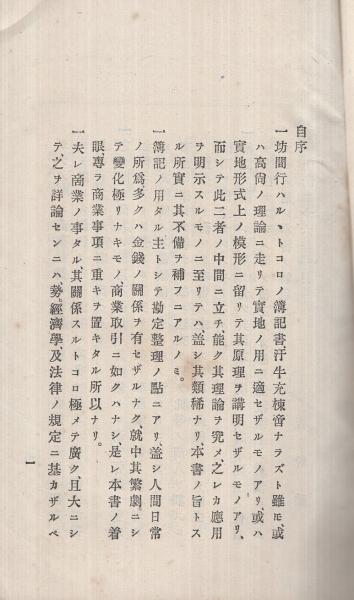 自序
一坊間行ハルヽトコロノ簿記書、汗牛充棟啻ナラズト雖モ、或
ハ高尙ノ理論ニ走リテ實地ノ用ニ適セザルモノアリ、或ハ
實地形式上ノ模形ニ留リテ其原理ヲ講明セザルモノアリ、
而シテ此二者ノ中間ニ立チ能ク其理論ヲ究メ、之レカ應用
ヲ明示スルモノニ至リテハ、蓋シ其類稀ナリ、本書ノ旨トス
ル所實ニ其不備ヲ補フニアルノミ。
一簿記ノ用タル主トシテ勘定整理ノ點ニアリ、蓋シ人間日常
ノ所爲多クハ金錢ノ關係ヲ有セザルナク、就中其繁劇ニシ
テ變化極リナキモノ、商業取引ニ如クハナシ、是レ本書ノ着
眼、專ラ商業事項ニ重キヲ置キタル所以ナリ。
一夫レ商業ノ事タル其關係スルトコロ極メテ廣ク、且大ニシ
テ、之ヲ詳論センニハ、勢。經濟學、及法律ノ規定ニ基カザルベ
1